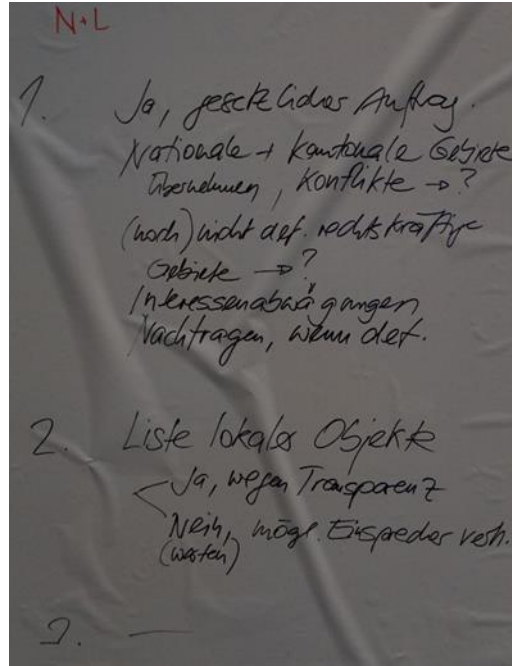 N+L
1. Ja, gesetzlicher Auftrag.
Nationale + kantonale Gebiete
übernehmen, Konflikte → ?
(noch) nicht def. rechtskräftige
Gebiete → ?
Interessenabwägungen
Nachtragen, wenn def.
2. Liste lokaler Objekte
Ja, wegen Transparenz
Nein, mögl. Einsprecher verh.
(warten)
3. —